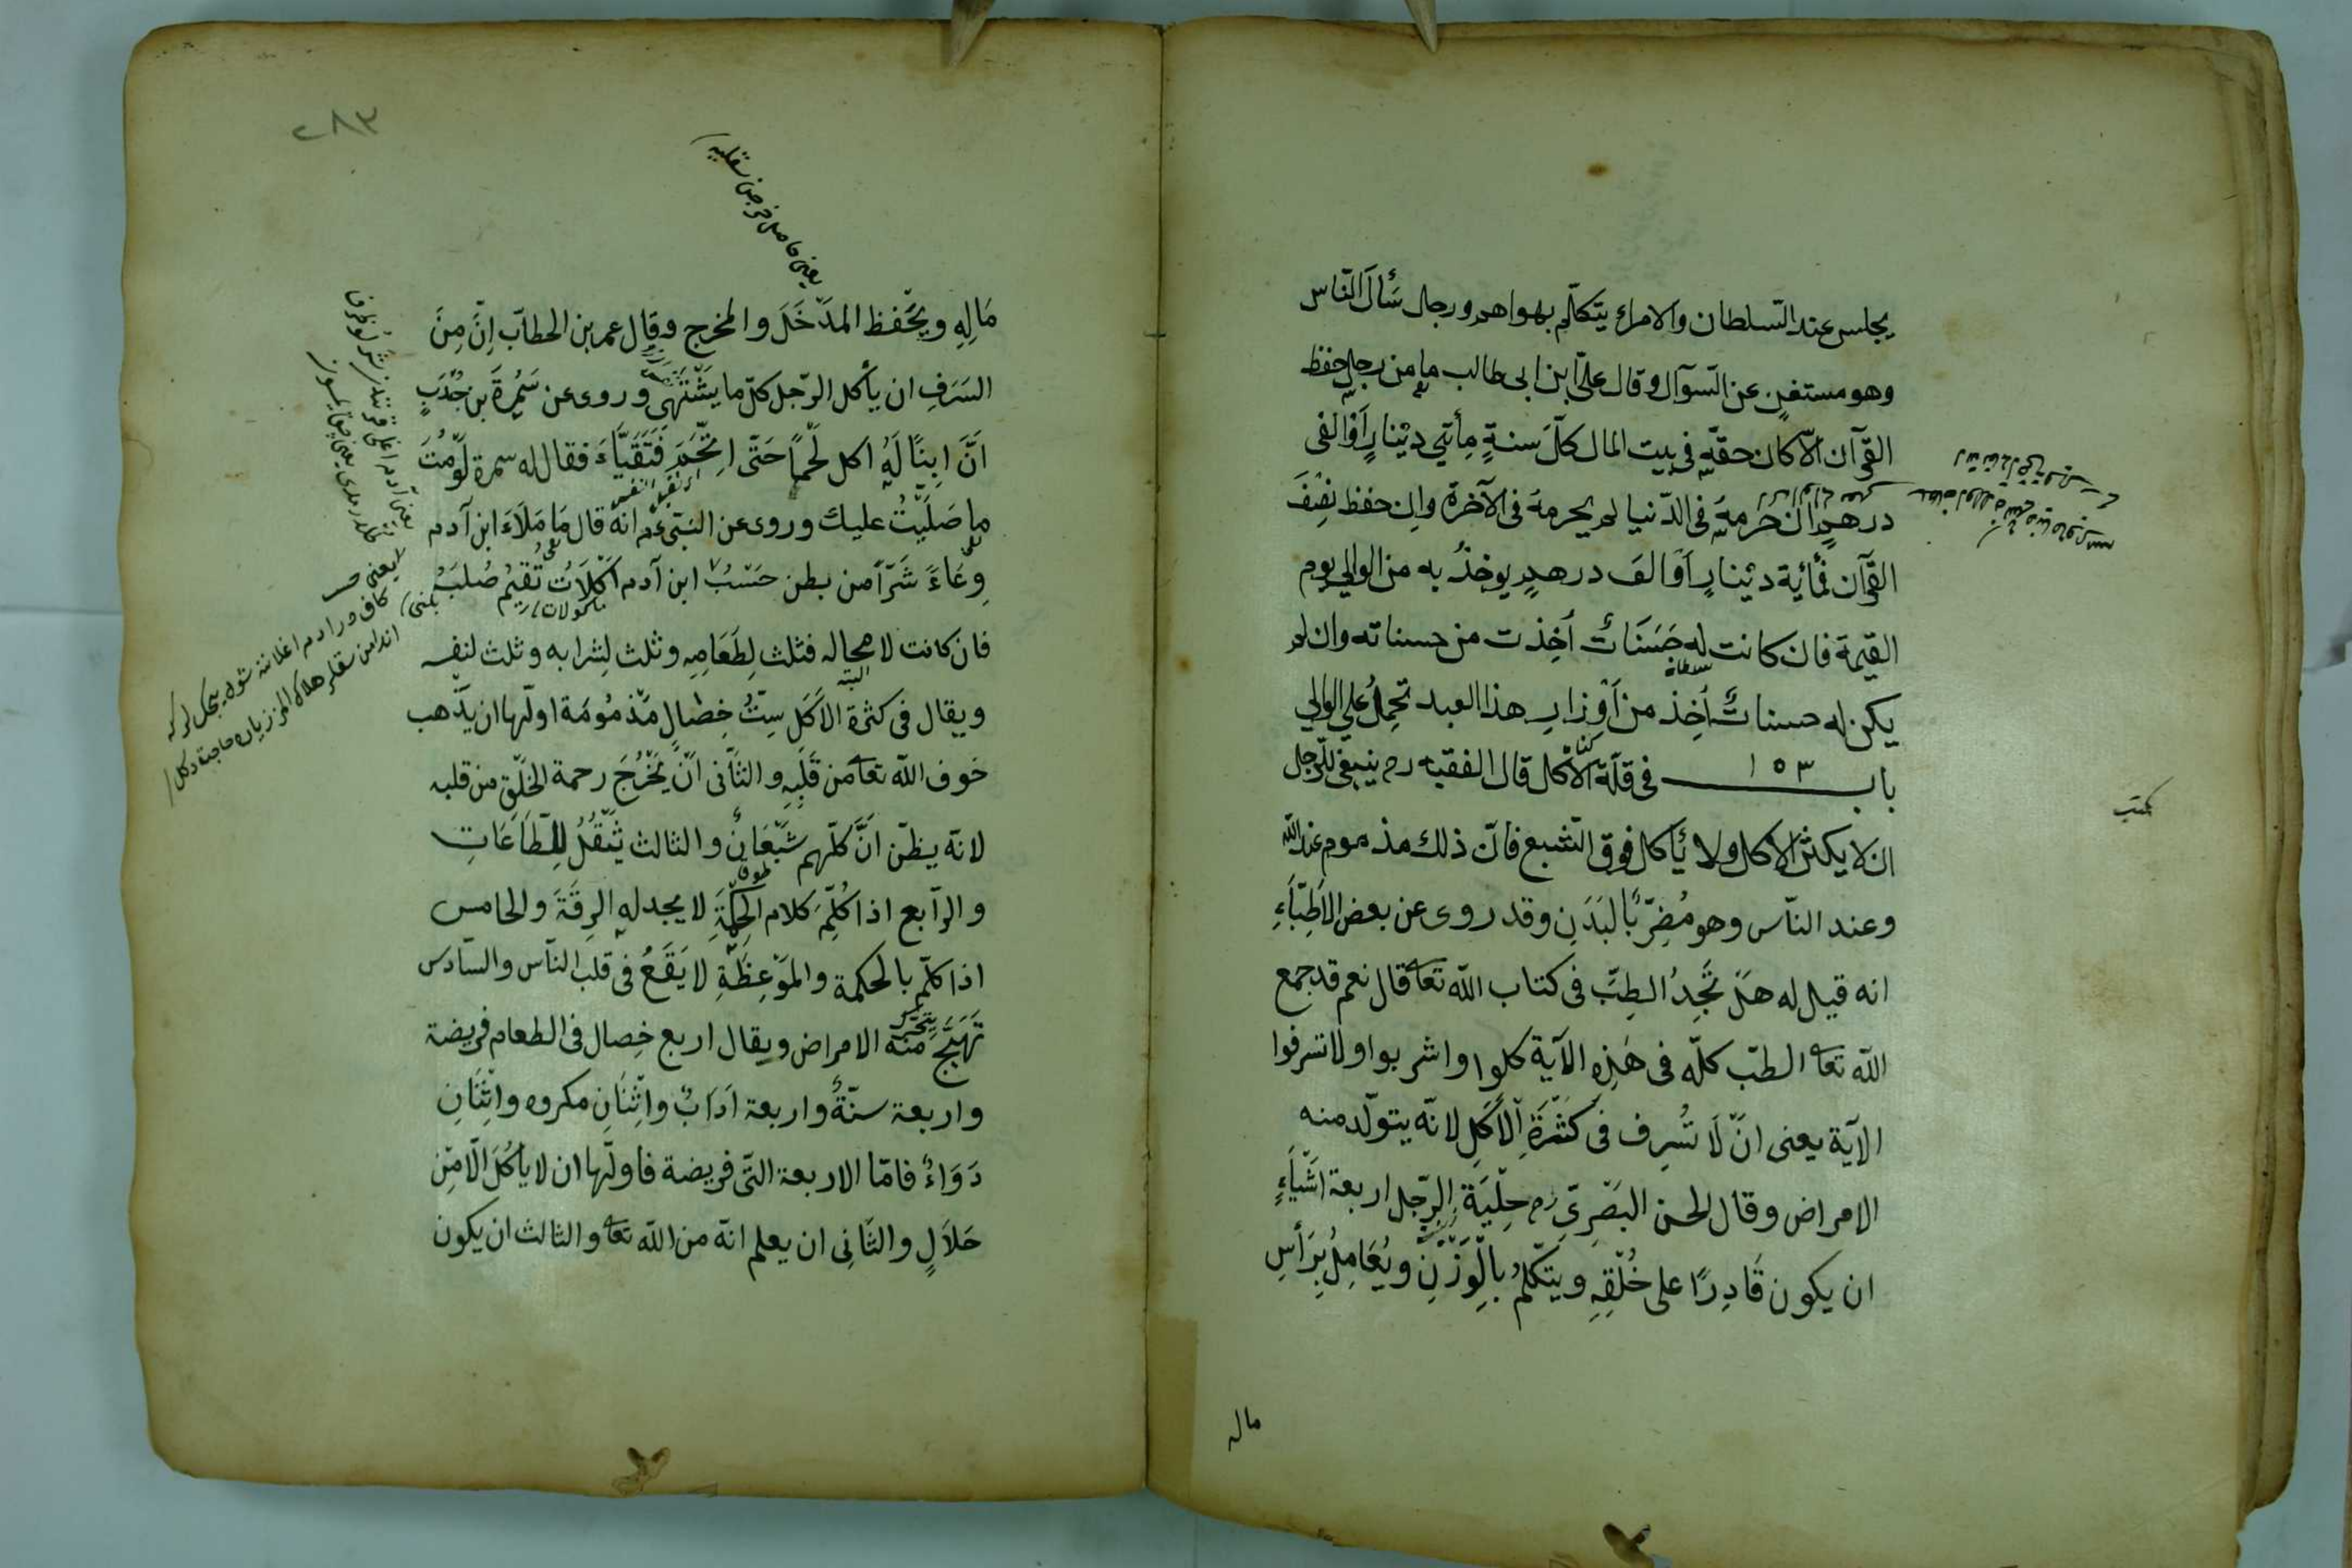 يجلس عند السّلطان والامراء يتكلّم بهواهم ورجل سَأَلَ النّاس
وهو مستغنٍ عن السّوآل وقال علىّ ابن ابى طالب ما من رجلٍ حفظ
القرآن الّا كان حقّه فى بيت المال كلَّ سنةٍ مِأَتي دينارٍ اَوْ الفى
درهمٍ ان حُرِمَهُ فى الدّنيا لم يحرمهُ فى الآخرة وان حفظ نِصْفَ
القرآن فمأية دينارٍ اَوْ الفَ درهمٍ يوخذُ به من الوالي يوم
القيمة فان كانت له حَسَنَاتٌ اُخِذت من حسناته وان لم
يكن له حسناتٌ اُخِذ من اَوْزارِ هذا العبد تحمِلُ علي الوالي
باب ١٥٣ فى قلّة الاكل قال الفقيه رح ينبغى للرّجل
ان لا يكثر الاكل ولا يأكل فوق الشبع فانّ ذلك مذموم عند الله
وعند النّاس وهو مُضِرٌّ بالبَدَنِ وقد روى عن بعض الاَطِبَّاءِ
انه قيل له هَلْ تَجِدُ الطِبَّ فى كتاب الله تعا قال نعم قد جمع
الله تعا الطبّ كلّه فى هٰذِهِ الآية كلوا واشربوا ولا تسرفوا
الآية يعنى انّ لَا تُسْرِف فى كَثْرَةِ الْاَكْلِ لانّه يتولّد منه
الامراض وقال الحسن البَصْرِىّ رح حِلْيَة الرّجل اربعة اشْيَاءٍ
ان يكون قَادِرًا على خُلْقِهِ ويتكلّمُ بالْوَزْنِ ويُعَامِلُ بِرَأْسِ
ماله
كتب
٢٨٣
يعنى
مَالِهِ ويحْفظ المدْخَلَ والمخرج وقال عمر بن الخطاب اِنَّ مِنَ
السَرَفِ ان يأكل الرّجل كلّ ما يَشْتَهَى وروى عن سَمُرَةَ بن جُنْدَبٍ
اَنَّ ابِنًا لَهُ اكل لَحْماً حَتّى اتْخَمَ فَتَقَيَّاءَ فقال له سمرة لَوْ مُتَّ
ما صَلَّيْتُ عليك وروى عن النبّى عم انه قال مَا مَلَاَءَ ابن آدم
وِعَاءً شَرّاً من بطن حَسْبُ ابن آدم اُكْلَاتٌ تُقِيمُ صُلبَهُ
مأكولات
فان كانت لا محاله فثلث لِطَعَامِهِ وثلث لِشرابه وثلث لنفسه
ويقال فى كثرة الاَكْلِ سِتُّ خِصَالٍ مَذْمُومَة اولّها ان يذْهب
خوف الله تعا من قَلْبِهِ والثَّانى اَنْ يَخْرُجَ رحمة الخَلْقِ من قلبه
لانّه يظنّ اَنَّ كلّهم شَبْعَانٌ والثالث يَثْقُلُ لِلطَّاعَاتِ
والرّابع اذا كُلِّمَ كلام الحِكْمَةِ لا يجد له الرِقَّةَ والخامس
اذا كلّم بالحكمة والمَوْعِظَةِ لا يَقَعُ فى قلب النّاس والسّادس
تَهَيَّجُ منه الامراض ويقال اربع خِصال فى الطعام فريضة
واربعة سنّةٌ واربعة اَدَابٌ واثْنَانِ مكروه واثْنَانِ
دَوَاءٌ فامّا الاربعة التّى فريضة فاولّها ان لا يأكُلَ الّا مِن
حَلَالٍ والثّانِى ان يعلم انّه من الله تعا والثالث ان يكون